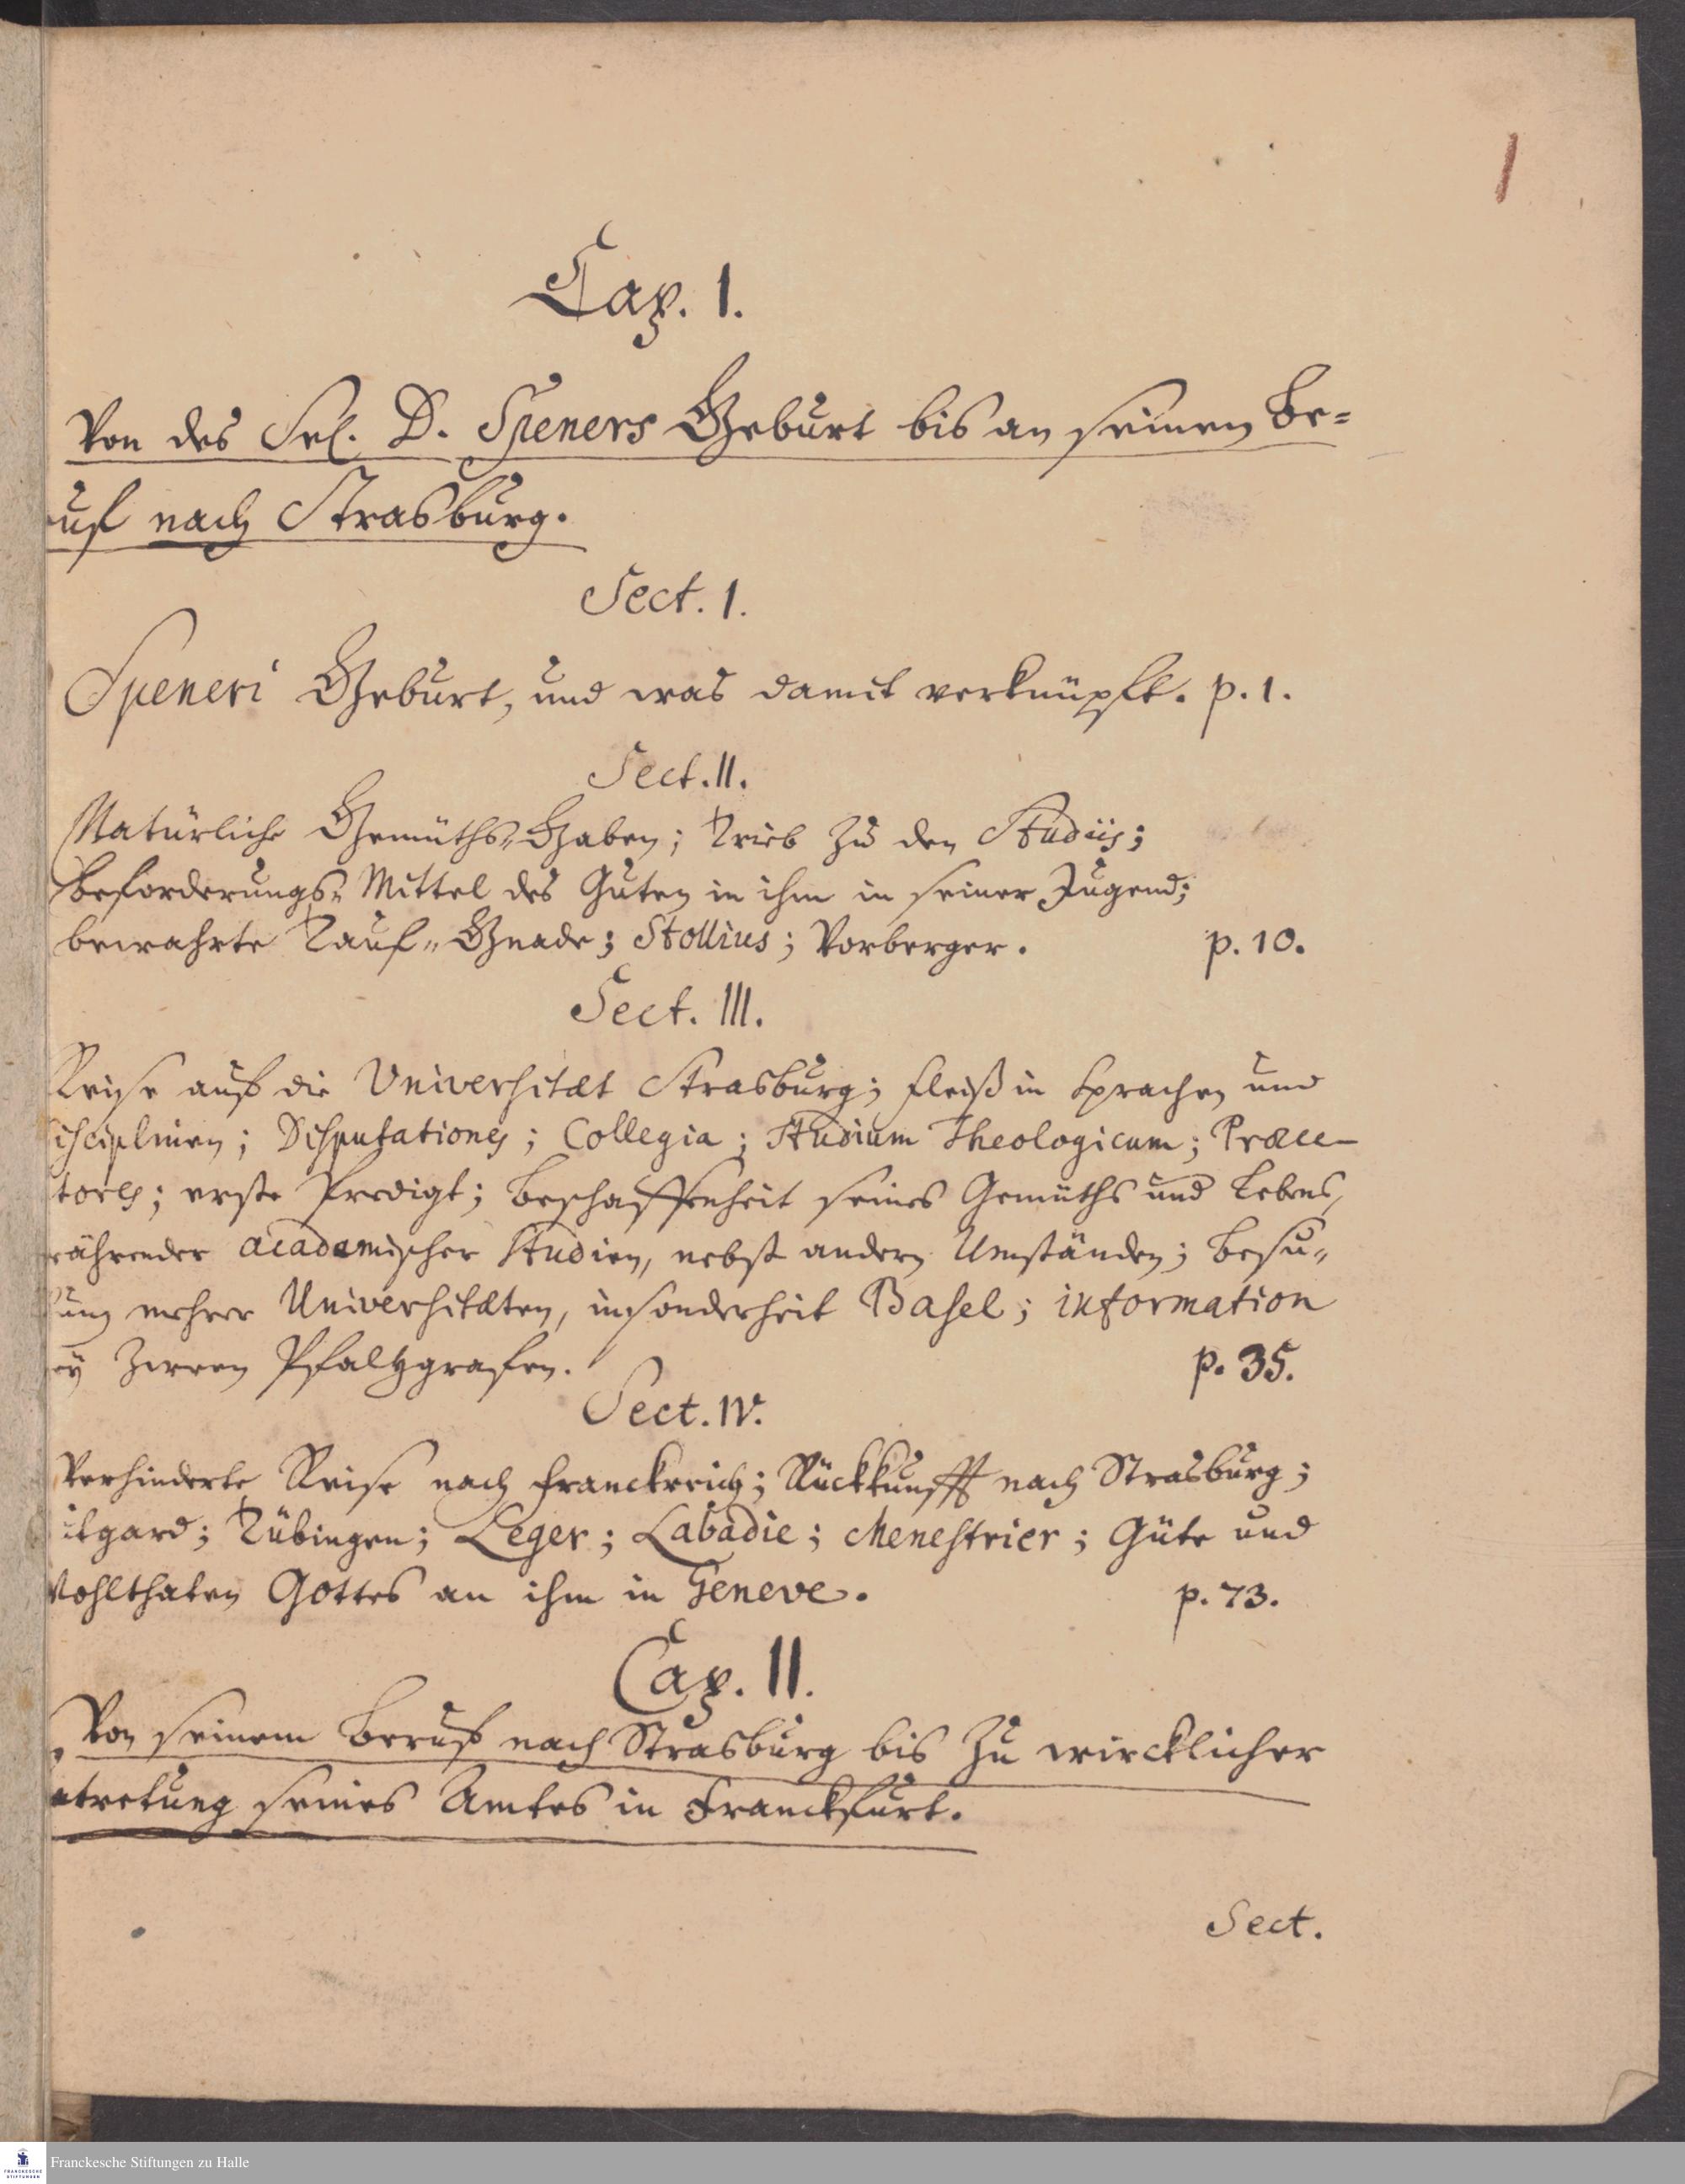 1
Cap. I.
Von des Sel. D. Speners Geburt bis an seinen Be=
ruf nach Strasburg.
Sect. I.
Speneri Geburt, und was damit verknüpft. p. 1.
Sect. II.
Natürliche Gemüths-Gaben; Trieb zu den Studiis;
Beforderungs-Mittel des Guten in ihm in seiner Jugend;
bewahrte Tauf-Gnade; Stollius; Vorberger. p. 10.
Sect. III.
Reyse auf die Universitæt Strasburg; Fleiß in Sprachen und
isciplinen; Disputationes; Collegia; Studium Theologicum; Præce-
tores; erste Predigt; Beschaffenheit seines Gemüths und Lebens,
währender academischer Studien, nebst andern Umständen; Besu-
ung mehrer Universitæten, insonderheit Basel; information
ey zween Pfaltzgrafen. p. 35.
Sect. IV.
Verhinderte Reise nach Franckreich; Rückkunfft nach Strasburg;
tgard; Tübingen; Leger; Labadie; Menestrier; Güte und
Wohlthaten Gottes an ihm in Geneve. p. 73.
Cap. II.
Von seinem Beruf nach Strasburg bis zu wircklicher
ntretung seines Amtes in Franckfurt.
Sect.
FRANCKESCHE STIFTUNGEN
Franckesche Stiftungen zu Halle